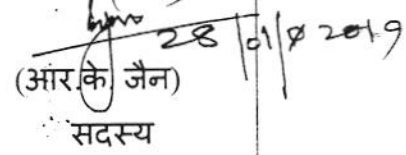 28/01/2019
(आर.के. जैन)
सदस्य